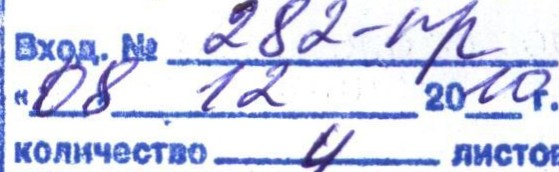 Вход. № 282-пр
«08» 12 2010 г
количество 4 листов